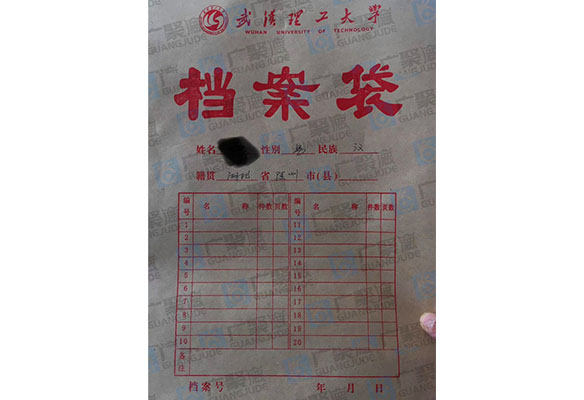 武汉理工大学
WUHAN UNIVERSITY OF TECHNOLOGY
档案袋
姓名 性别 民族 汉
籍贯 湖北 省 市(县)
编号 名 称 件数 页数 编号 名 称 件数 页数
1 11
2 12
3 13
4 14
5 15
6 16
7 17
8 18
9 19
10 20
备注
档案号 年 月 日
广聚德
GUANGJUDE